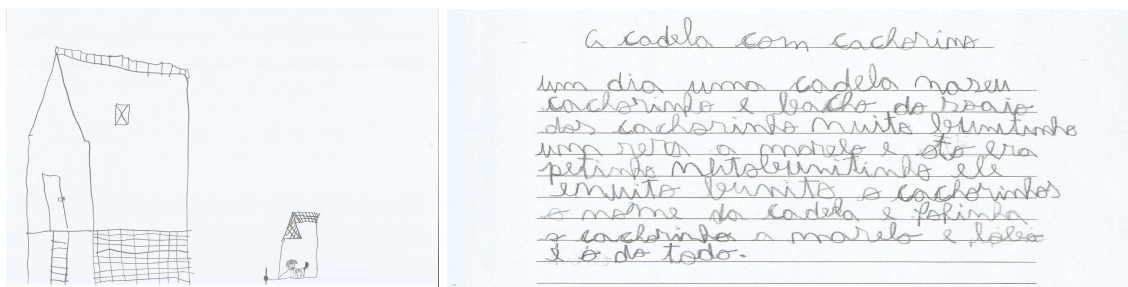 a cadela com cachorino
um dia uma cadela naseu
cachorinho e bacho do soaio
dos cachorinho muito bunitinho
uma rera a marelo e oto era
petinho mutobunitinho ele
emuito bunito o cachorinhos
o nome da cadela e fofinha
o cachorinho a marelo e
é o do todo.